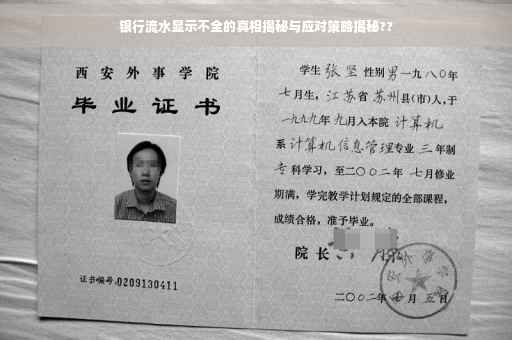 银行流水显示不全的真相揭秘与应对策略揭秘??
西安外事学院
毕业证书
证书编号:0209130411
学生张坚性别男一九八〇年
七月生,江苏省苏州县(市)人,于
一九九九年九月入本院计算机
系计算机信息管理专业三年制
专科学习,至二〇〇二年七月修业
期满,学完教学计划规定的全部课程,
成绩合格,准予毕业。
院长
二〇〇二年 月五日